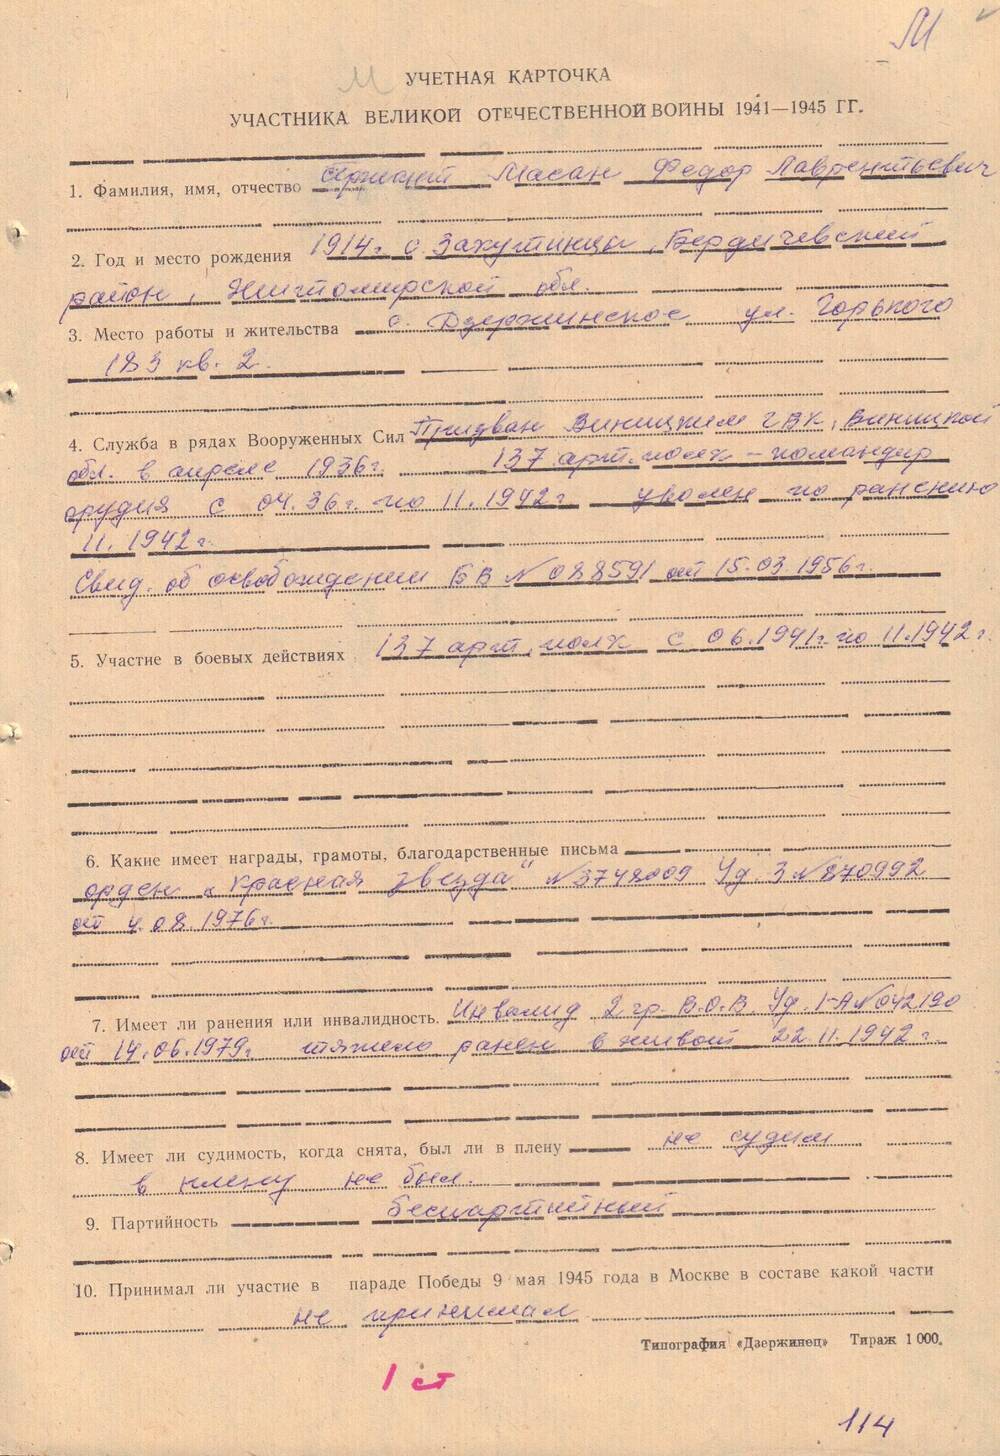 М
М
УЧЕТНАЯ КАРТОЧКА
УЧАСТНИКА ВЕЛИКОЙ ОТЕЧЕСТВЕННОЙ ВОЙНЫ 1941—1945 ГГ.
1. Фамилия, имя, отчество Масан Федор Лаврентьевич
2. Год и место рождения 1914г. с. Захутинцы, Бердичевский
район, Житомирской обл.
3. Место работы и жительства с. Дзержинское ул. Горького
183 кв. 2.
4. Служба в рядах Вооруженных Сил Призван Виницким ГВК, Виницкой
обл. в апреле 1936г. 137 арт. полк – командир
орудия с 04.36г. по 11.1942г уволен по ранению
11.1942г.
Свид. об освобождении БВ № 088591 от 15.03.1956г.
5. Участие в боевых действиях 137 арт. полк с 06.1941г. по 11.1942г.
6. Какие имеет награды, грамоты, благодарственные письма
орден „Красная звезда" №3748009 Уд. З №870992
от 4.08.1976г.
7. Имеет ли ранения или инвалидность. Инвалид 2 гр. В.О.В. Уд. 1-А №042190
от 14.06.1979г. тяжело ранен в живот 22.11.1942г.
8. Имеет ли судимость, когда снята, был ли в плену не судим
в плену не был.
9. Партийность беспартийный
10. Принимал ли участие в параде Победы 9 мая 1945 года в Москве в составе какой части
не принимал
Типография «Дзержинец» Тираж 1 000.
1 ст
114